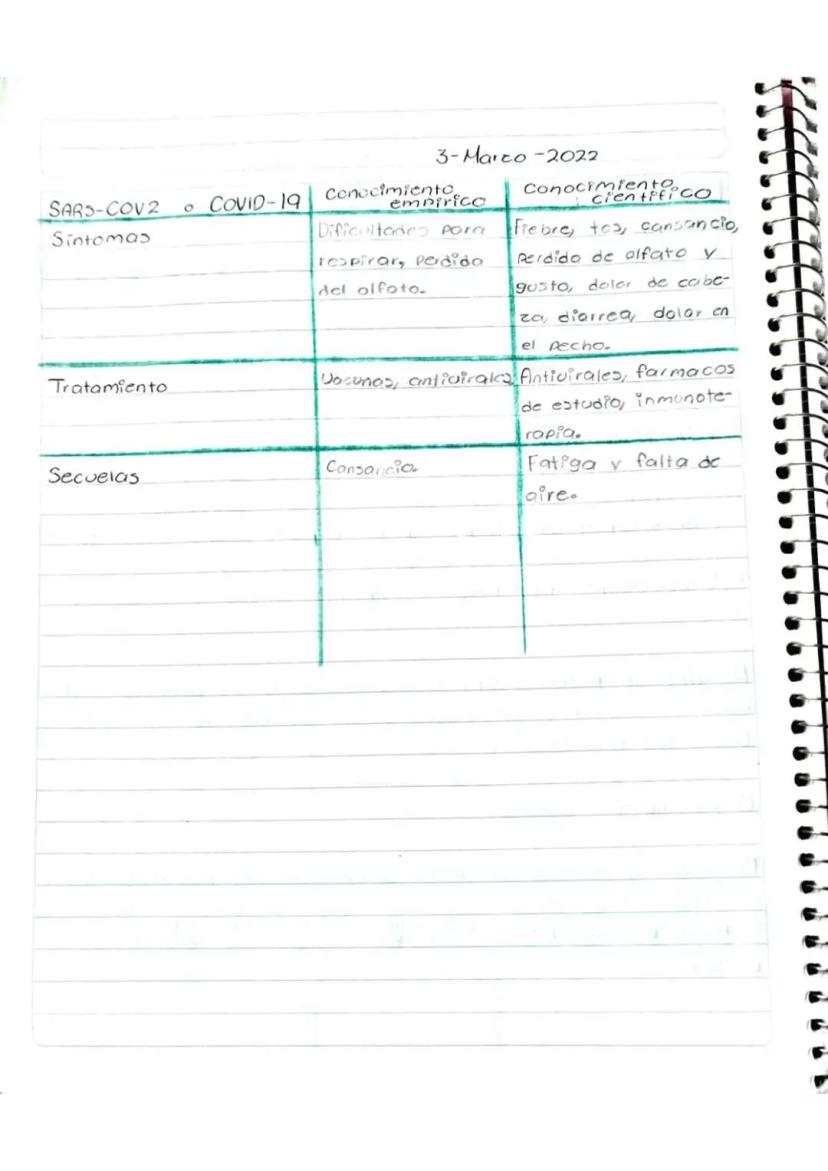 3-Marzo-2022
SARS-COV2 o COVID-19
Conocimiento
empírico
Conocimiento
científico
Síntomas
Dificultades para
respirar, perdida
del olfato.
Fiebre, tos, cansancio,
perdida de olfato y
gusto, dolor de cabe-
za, diarrea, dolor en
el pecho.
Tratamiento
Vacunas, antivirales
Antivirales, farmacos
de estudio, inmunote-
rapia.
Secuelas
Cansancio.
Fatiga y falta de
aire.